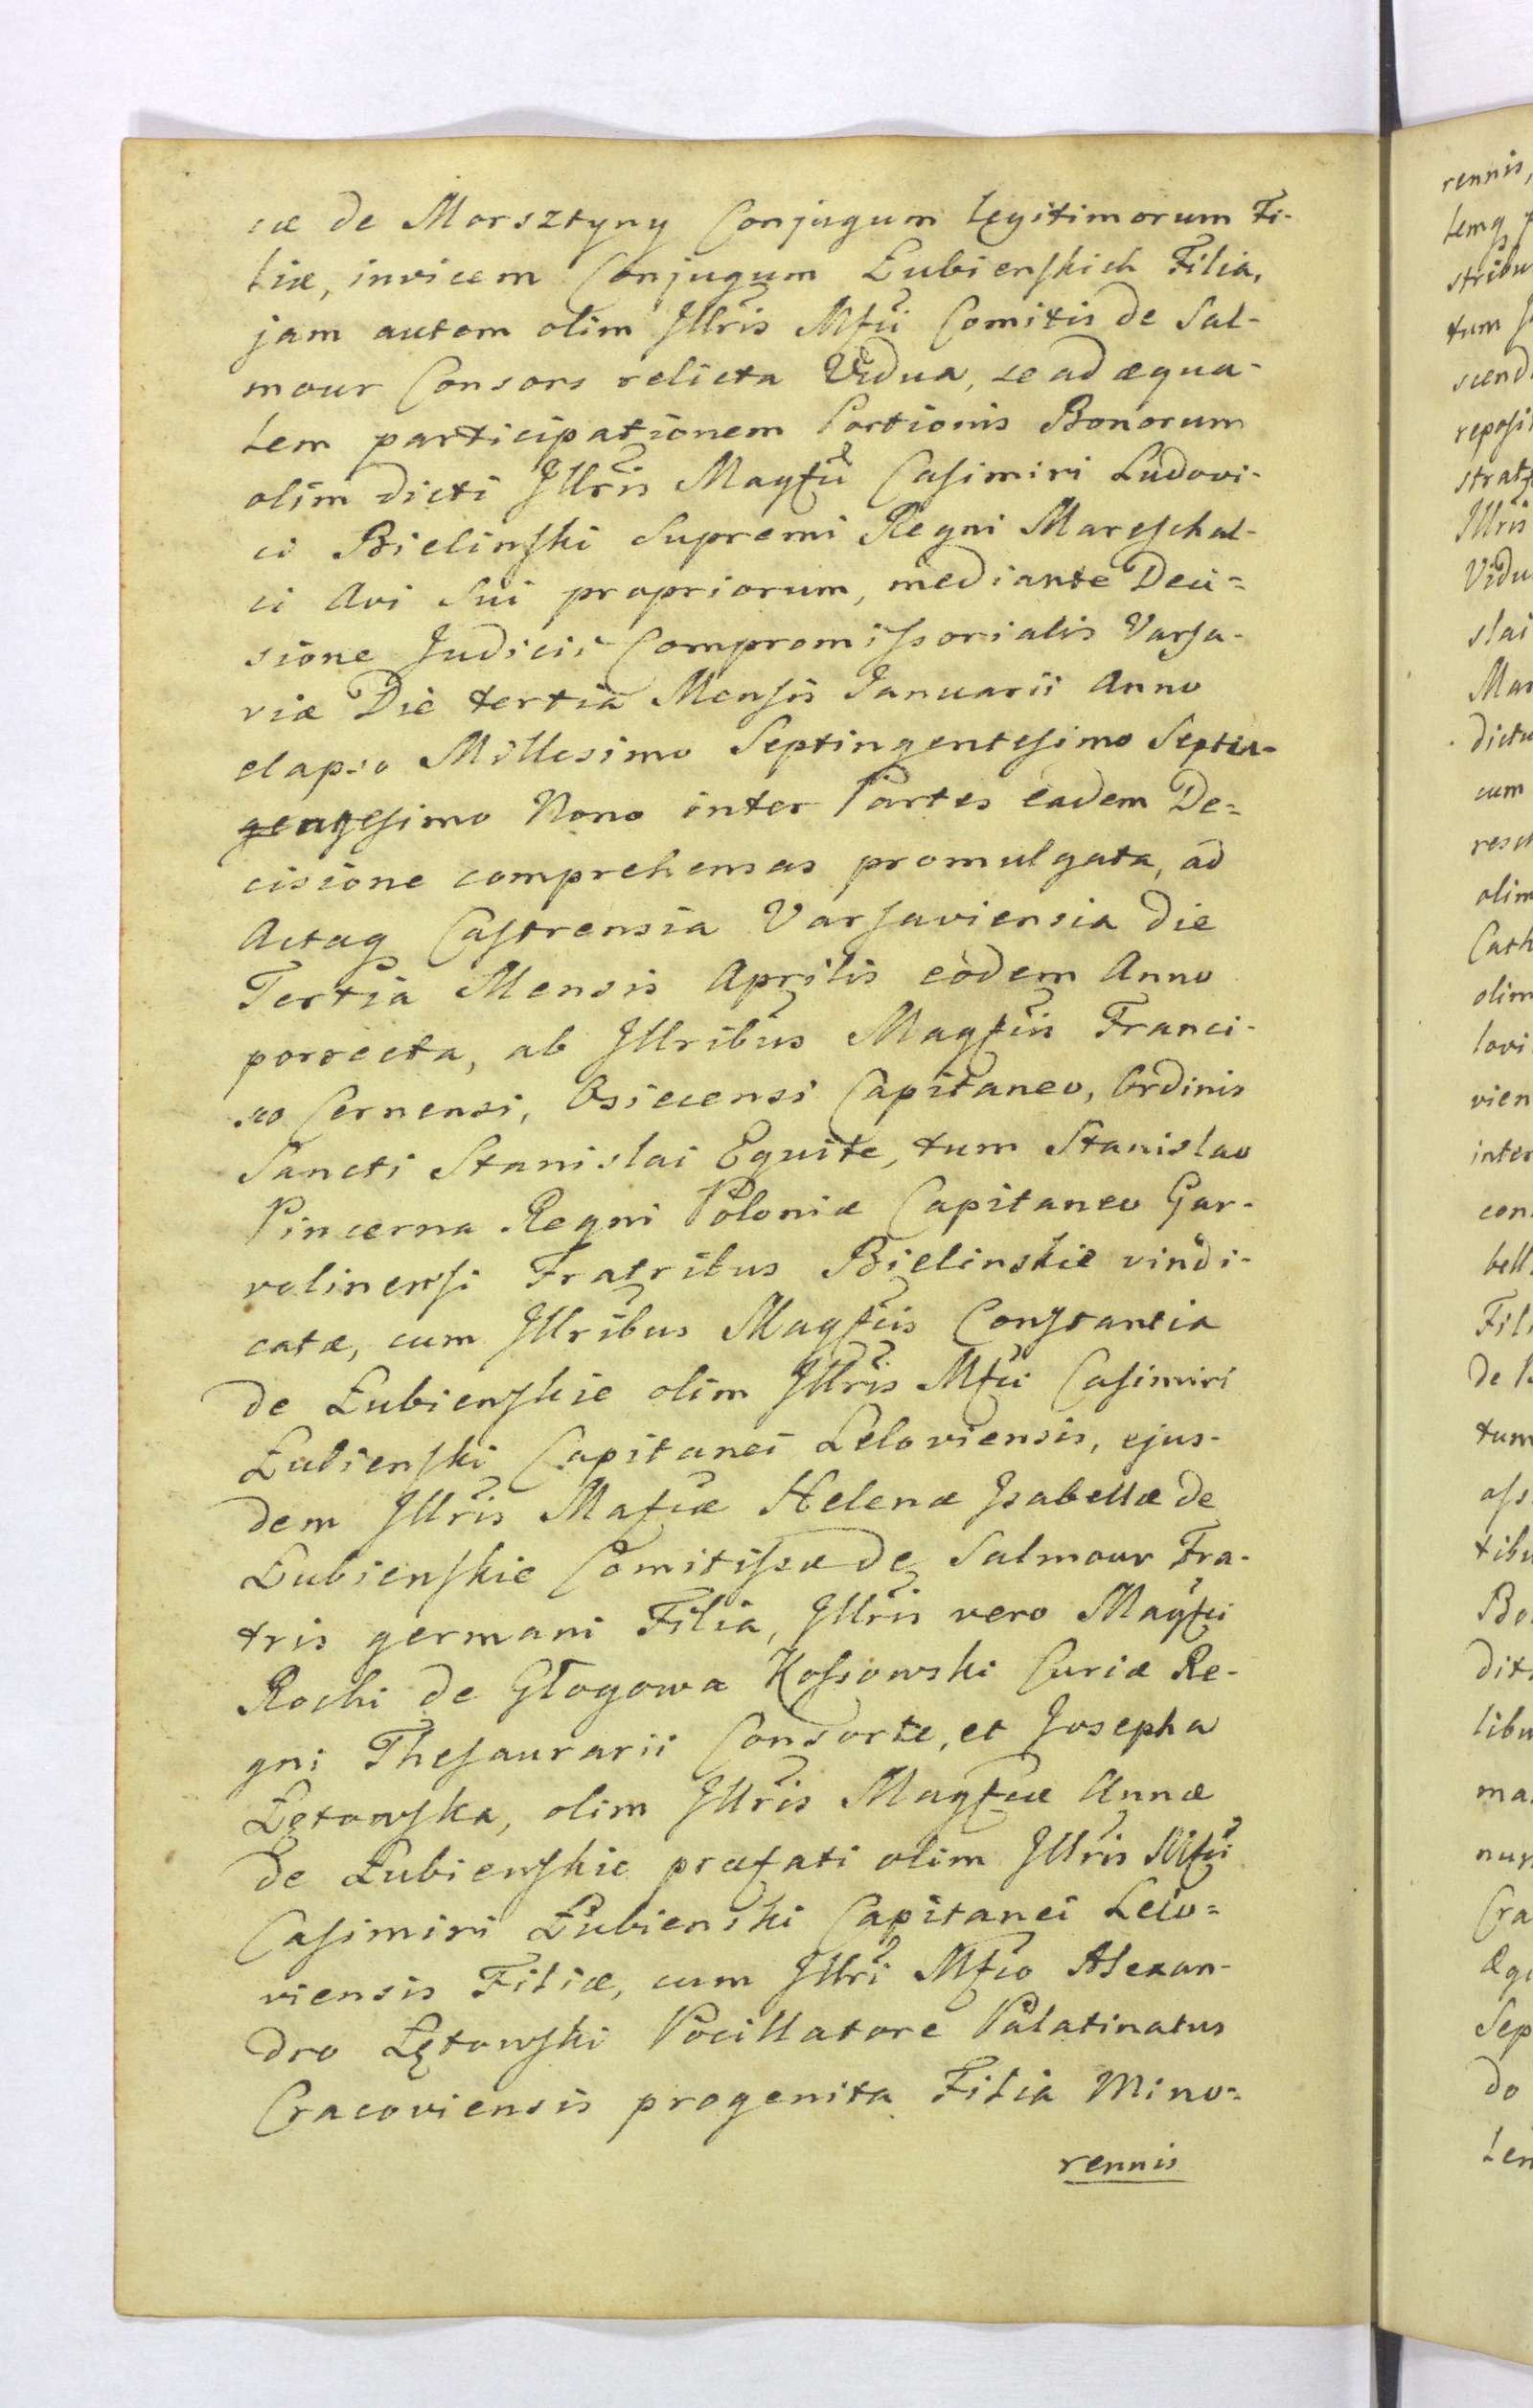 cæ de Morsztyny Conjugum legitimorum Fi-
liæ, invicem Conjugum Łubienskich Filia,
jam autem olim Illris Mfci Comitis de Sal-
mour Consors relicta Vidua, se ad æqua-
lem participationem Portionis Bonorum
olim dicti Illris Magfci Casimiri Ludovi-
ci Bielinski Supremi Regni Mareschal-
ci Avi Sui propriorum, mediante Deci=
sione Judicii Compromissorialis Varsa-
viæ Die tertia Mensis Januarii Anno
elapso Millesimo Septingentesimo Septua-
gesimo Nono inter Partes eadem De=
cisione comprehensas promulgata, ad
Actaq Castrensia Varsaviensia Die
Tertia Mensis Aprilis eodem Anno
porrecta, ab Illribus Magfcis Franci-
sco Cernensi, Osiecensi Capitaneo, Ordinis
Sancti Stanislai Equite, tum Stanislao
Pincerna Regni Poloniæ Capitaneo Gar-
volinensi Fratribus Bielinskie vindi-
catæ, cum Illribus Magfcis Constantia
de Łubienskie olim Illris Mfci Casimiri
Łubienski Capitanei Leloviensis, ejus-
dem Illris Mafcæ Helenæ Isabellæ de
Łubienskie Comitissæ de Salmour Fra-
tris germani Filia, Illris vero Magfci
Rochi de Głogowa Kossowski Curiæ Re-
gni Thesaurarii Consorte, et Josepha
Łętowska, olim Illris Magfcæ Annæ
de Łubienskie præfati olim Illris Mfci
Casimiri Łubienski Capitanei Lelo=
viensis Filiæ, cum Illri Mfco Alexan-
dro Łętowski Pocillatore Palatinatus
Cracoviensis progenita Filia Mino=
rennis
rennis,
stribu
tum
scend
reposi
Illris
Vidu
slai
Mar
dictu
cum
olim
Cath
olim
lovi
vien
inter
con
bell
Fili
tum
Bo
dit
libu
ma
Cra
Sep
do